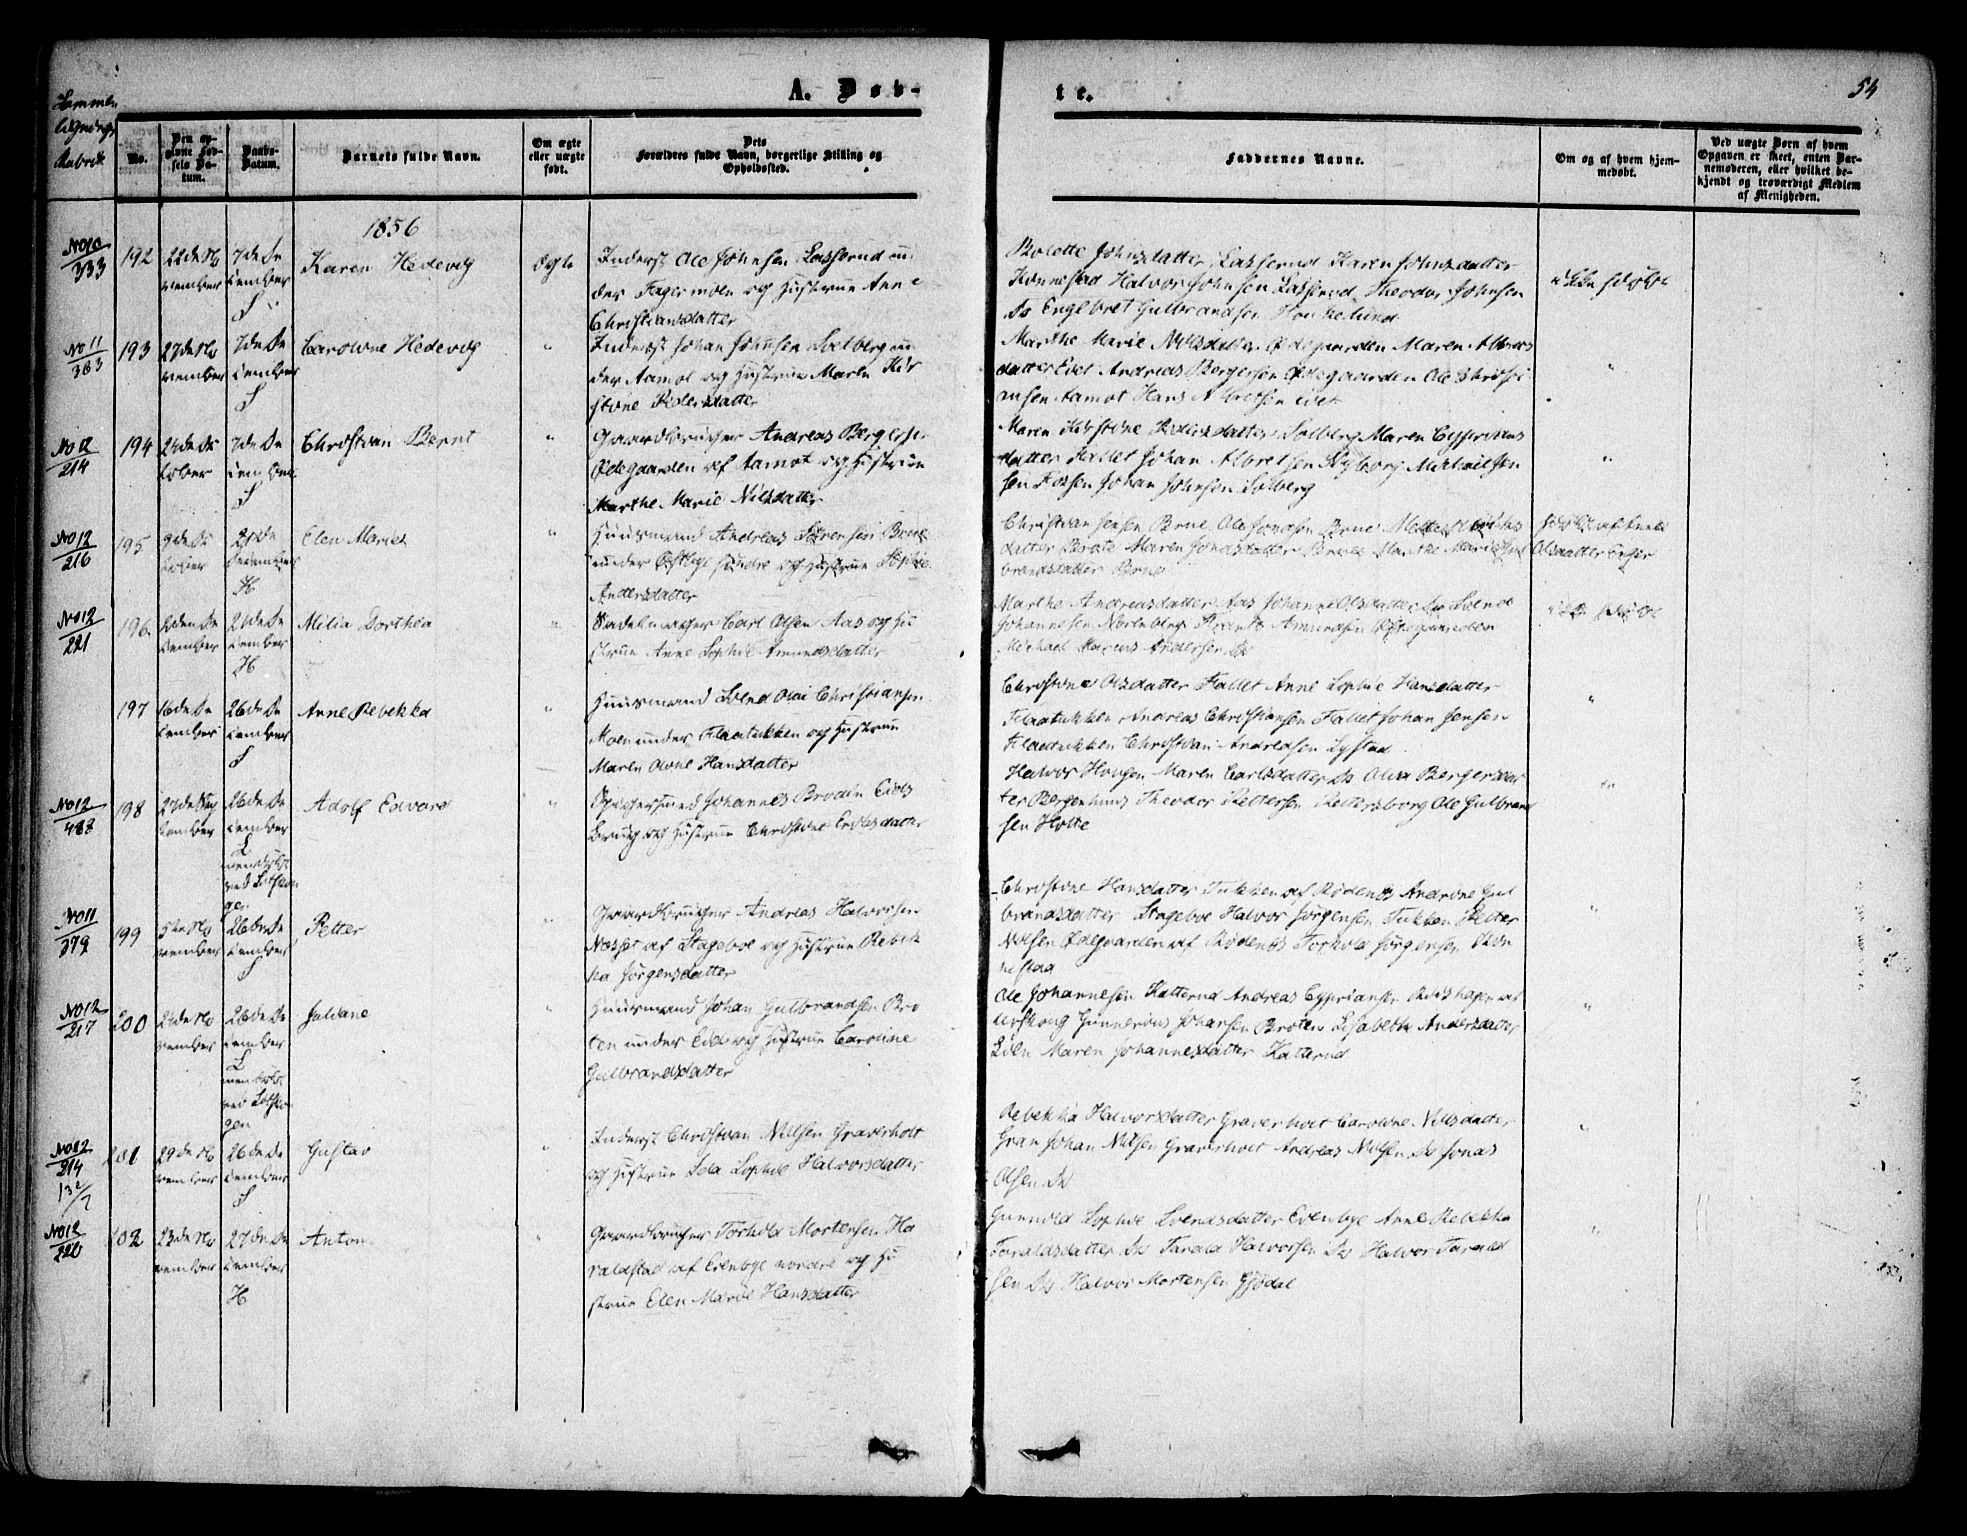 A. Døb-
te.
54
No.
Den op-
givne Fød-
sels Da-
tum.
Daabs-
Datum.
Barnets fulde Navn.
Om ægte
eller uægte
født.
Dets
Forældres fulde Navn, borgerlige Stilling og
Opholdssted.
Faddernes Navne.
Om og af hvem hjem-
medøbt.
Ved uægte Børn af hvem
Opgaven er skeet, enten Bar-
nemoderen, eller hvilket be-
kjendt og troværdigt Medlem
af Menigheden.
1856
No 10
333
192
22de No
vember
7de De
cember
Karen Hedevig
Ægte
Inderst Ole Johnsen Lasserud un
der Fagermoen og Hustrue Anne
Christiansdatter
Bolette Johnsdatter Lasserud Karen Johnsdatter
Kønnestad Halvor Johnsen Lasserud Theodor Johnsen
Ds Englebret Gulbrandsen
No 11
363
193
27de No
vember
7de De
cember
Caroline Hedevig
"
Inderst Johan Johnsen Solberg un
der Aamot og Hustrue Maren Kir
stine Pedersdatter
Marthe Marie Nilsdatter Ødegaarden Maren Albrets
datter Eidet Andreas Bergersen Ødegaarden Ole Christi
ansen Aamot Hans Albretsen Eidet
"
No 12
214
194
7de De
cember
Christian Bernt
"
Gaardbruger Andreas Bergersen
Ødegaarden af Aamot og Hustrue
Marthe Marie Nilsdatter
Maren Kirstine Pedersdatter Solberg Maren Cyprians
datter Fallet Johan Albretsen Nyborg
sen Fossen Johan Johnsen Solberg
"
No 12
216
195
21de
December
H
Elen Mariet
"
Huusmand Andreas Sørensen Brue
under Østbye søndre og Hustrue Sophie
Andersdatter
Christian Jensen Brue Ole Jonasen Brue
datter Maren Jonasdatter Brue Marthe Marie Gul
brandsdatter Brue
Olsdatter
No 12
221
196
21de De
cember
H
Milia Dorthea
"
Sadelmager Carl Olsen Aas og Hu
strue Anne Sophie Amundsdatter
Marthe Andreasdatter Aas Johanne Olsdatter Ds Svend
Johannesen Nordenberg Amundsen Østegaarden
Michael Andersen Ds
197
16de De
cember
26de De
cember
Anne Rebekka
"
Huusmand Svend Olai Christiansen
Moen under Flaatukken og Hustrue
Maren Oline Hansdatter
Christine Olsdatter Fallet Anne Sophie Hansdatter
Flaatukken Andreas Christiansen Fallet Johan Jensen
Flaatukken Christian Andreasen Lystad
"
No 12
198
26de De
cember
Adolf Edvard
"
Spigersmed Johannes Brodin Eids
Brug og Hustrue Christine Eriksdatter
Halvor Haugen Maren Carlsdatter Ds Olia Bergersdat
ter Bergenhuus Theodor Pettersen Pettersborg Ole Gulbrand
sen Holte
No 11
379
199
5te No
vember
26de De
cember
Petter
"
Gaardbruger Andreas Halvorsen
Næsset af Stageboe og Hustrue Rebek
ka Jørgensdatter
Christine Hansdatter Tukken af Rødenes Andrine Gul
brandsdatter Stageboe Halvor Jørgensen Tukken Petter
Nilsen Ødegaarden af Rødenes Torkild Jørgensen
nestad
"
No 12
217
200
26de De
cember
Juliane
Huusmand Johan Gulbrandsen Bro
ten under Eid og Hustrue Caroline
Gulbrandsdatter
Ole Johannesen Katterud Andreas Cypriansen af
Urskoug Gunnerius Johansen Broten Lisabeth Andersdatter
Eden Maren Johannesdatter Katterud
"
No 12
214
201
29de No
vember
26de De
cember
Gustav
"
Inderst Christian Nilsen Graverholt
og Hustrue Lea Sophie Halvorsdatter
Rebekka Halvorsdatter Graverholt Caroline Nilsdatter
Gran Johan Nilsen Graverholt Andreas Nilsen Ds Jonas
Olsen Ds
"
No 12
220
202
23de No
vember
27de De
cember
H
Anton
"
Gaardbruger Torkild Mortensen Ha
raldstad af Evenbye nordre og Hu
strue Elen Marie Hansdatter
Gunnild Sophie Svendsdatter Evenbye Anne Rebekka
Taraldsdatter Ds Tarald Halvorsen Ds Halvor Tarald
sen Ds Halvor Mortensen Gjødal
"